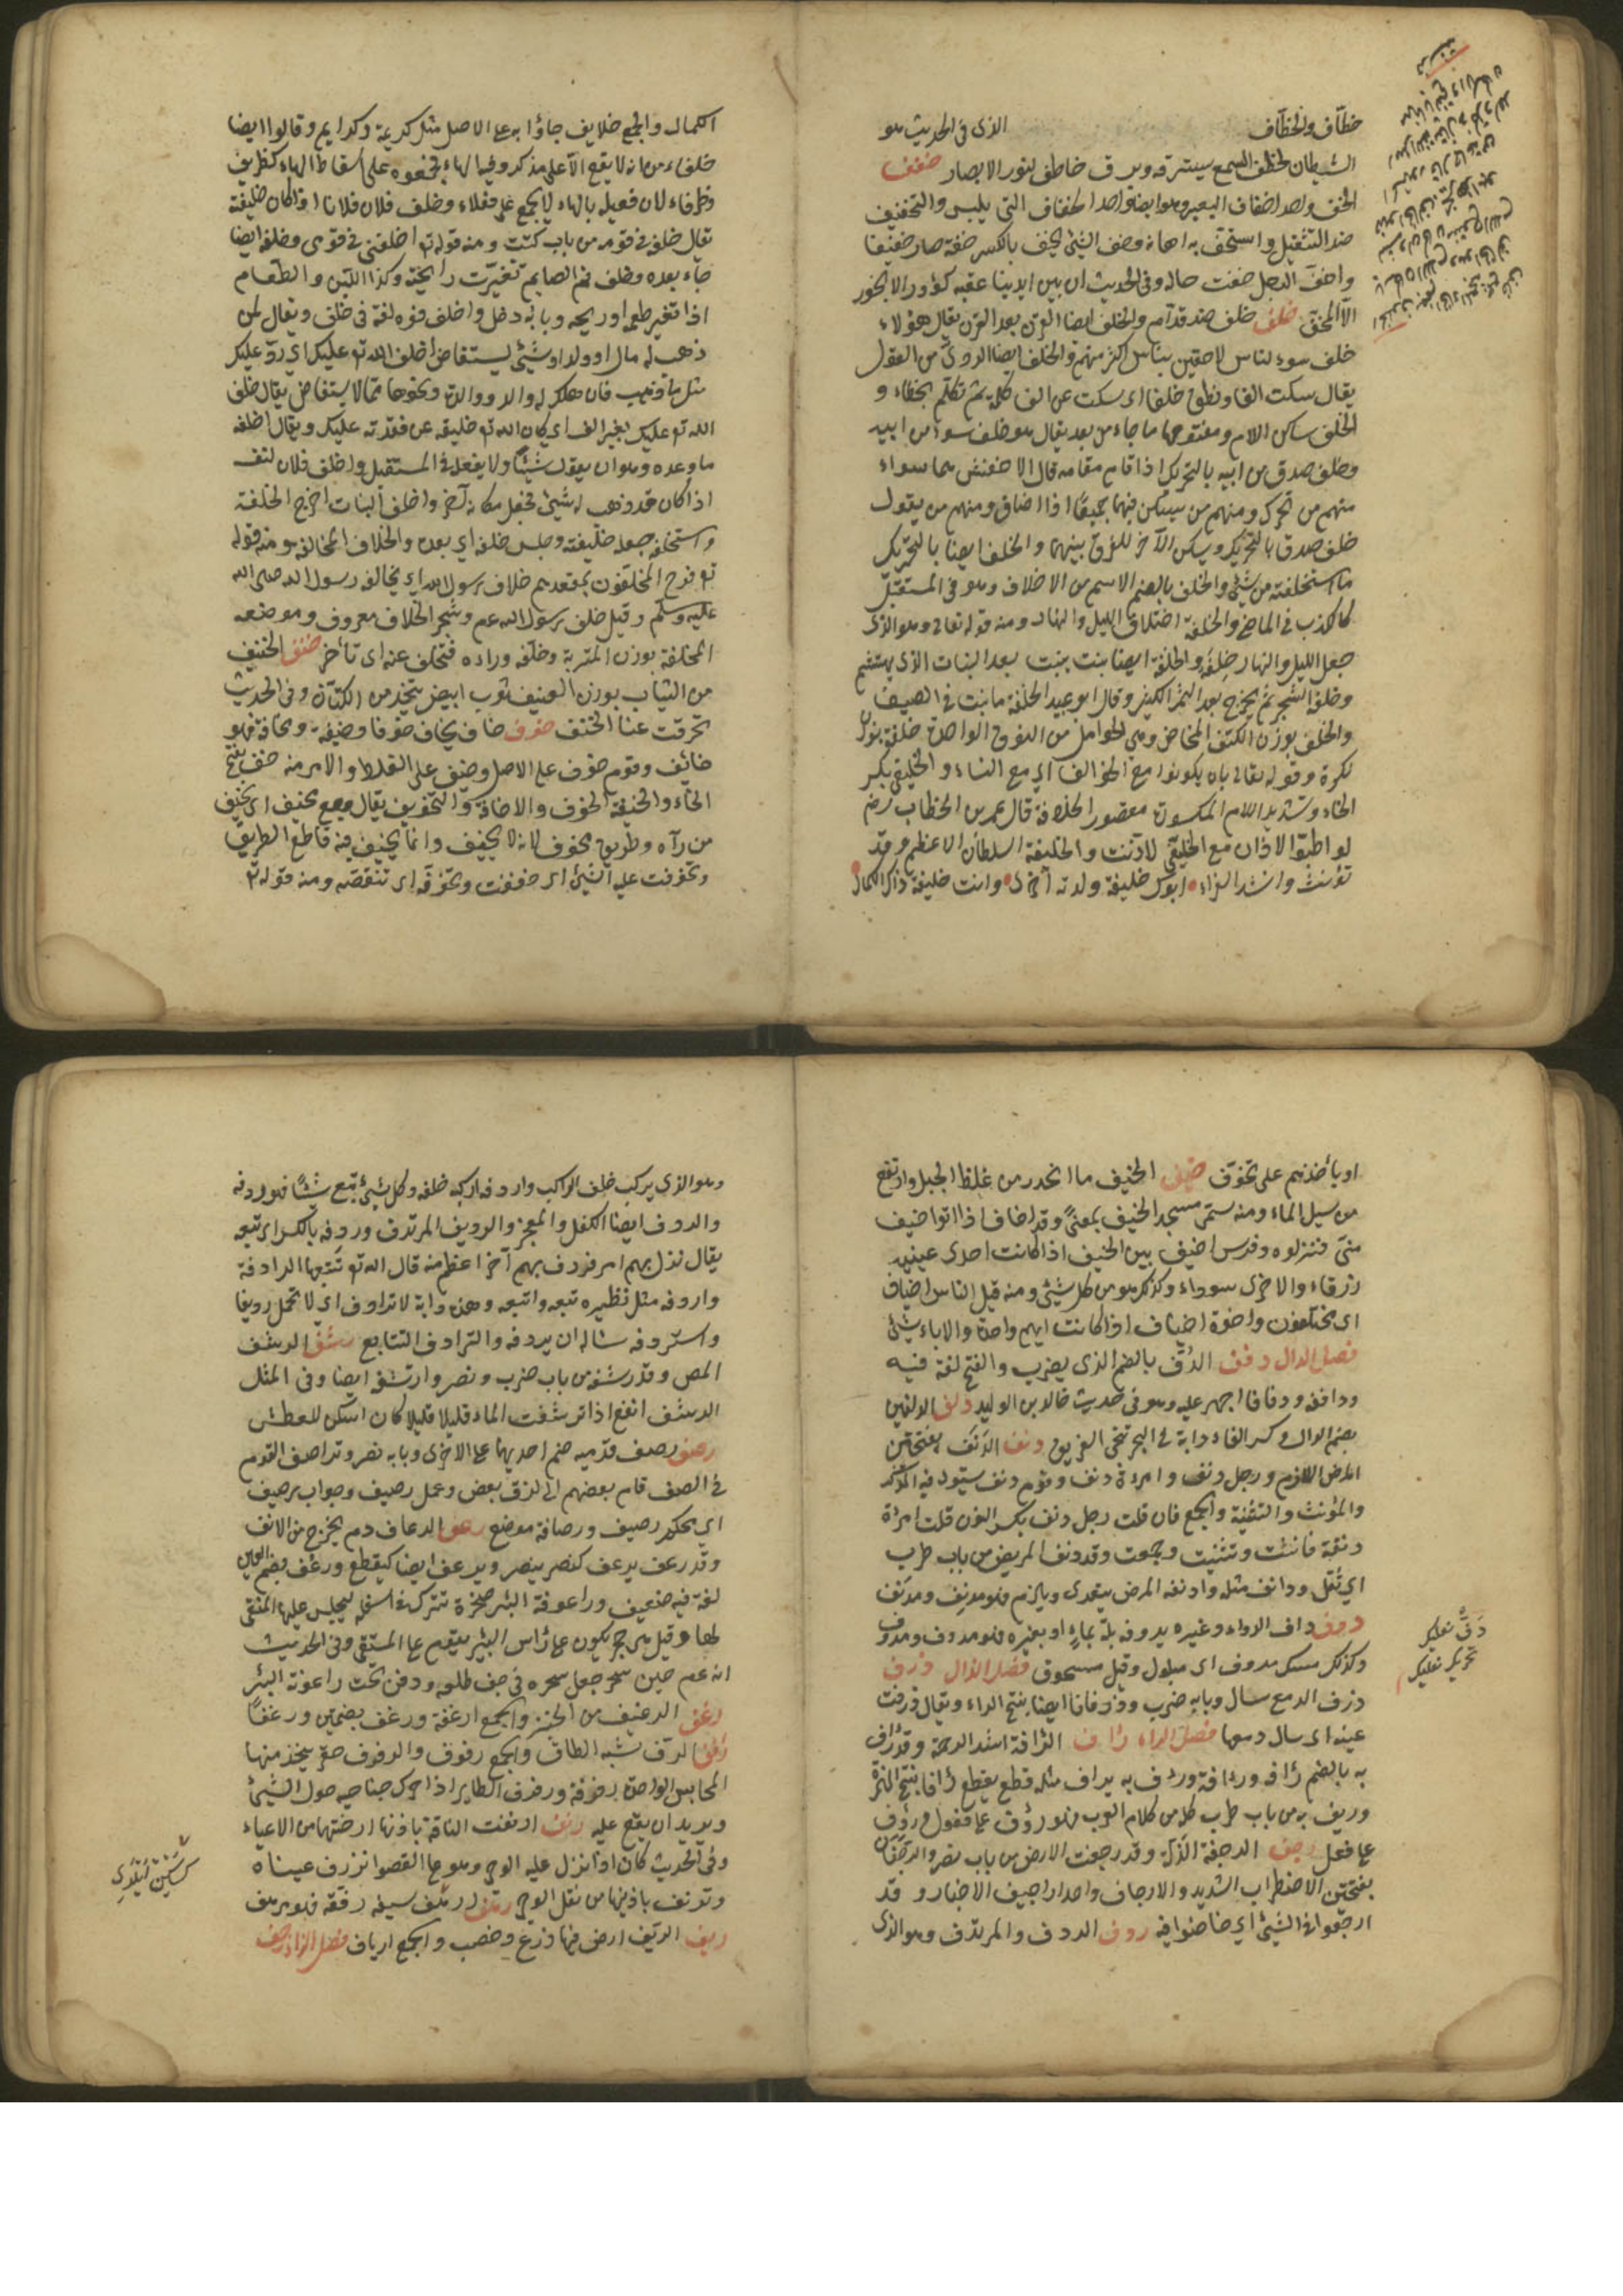 خطاف والخطاف الذى فى الحديث هو
الشيطان يخطف السمع يسترقه وبرق خاطف لنور الابصار خفف
الخف واحد اخفاف البعير وهو ايضا واحد الخفاف التى يلبس والتخفيف
ضد التثقيل واستخف به اهانه وخف الشئ يخف بالكسر خفة صار خفيفا
واخف الرجل خفت حاله وفى الحديث ان بين ايدينا عقبه كؤود لا يجوز
الا المخف خلف خلف ضد قدام والخلف ايضا القرن بعد القرن يقال هؤلاء
خلف سوء لناس لاحقين بناس اكثر منهم والخلف ايضا الردئ من القول
يقال سكت الفا ونطق خلفا اى سكت عن الف كلمة ثم تكلم بخطاء و
الخلف ساكن اللام ومفتوحها ما جاء من بعد يقال هو خلف سوء من ابيه
وخلف صدق من ابيه بالتحريك اذا قام مقامه قال الاخفش هما سواء
منهم من تحرك ومنهم من يسكن فيهما جميعا اذا اضاف ومنهم من يقول
خلف صدق بالتحريك ويسكن الآخر للفرق بينهما والخلف ايضا بالتحريك
ما استخلفته من شئ والخلف بالضم الاسم من الاخلاف وهو فى المستقبل
كالكذب فى الماضى والخلفة اختلاف الليل والنهار ومنه قوله تعالى وهو الذى
جعل الليل والنهار خلفة والخلفة ايضا نبت ينبت بعد النبات الذى يتهشم
وخلفة الشجر ثمر يخرج بعد الثمر الكثير وقال ابو عبيد الخلفة ما نبت فى الصيف
والخلف بوزن الكتف المخاض وهى الحوامل من النوق الواحدة خلفة بوزن
نكرة وقوله تعالى بان يكونوا مع الخوالف اى مع النساء والخليفى بكسر
الخاء وتشديد اللام المكسورة مقصور الخلافة قال عمر بن الخطاب رضه
لو اطيق الاذان مع الخليفى لاذنت والخليفة السلطان الاعظم وقد
تؤنث وانشد الفراء ابوك خليفة ولدته اخرى وانت خليفة ذاك الكمال
الكمال والجمع خلايف جاؤا به على الاصل مثل كريمة وكرايم وقالوا ايضا
خلفاء من انه لا يقع الا على مذكر وفيه الهاء فجمعوه على اسقاط الهاء كظريف
وظرفاء لان فعيلة بالهاء لا يجمع على فعلاء وخلف فلان فلانا اذا كان خليفته
يقال خلفه فى قومه من باب كتب ومنه قوله تع اخلفنى فى قومى وخلفه ايضا
جاء بعده وخلف فم الصايم تغيرت رايحته وكذا اللبن والطعام
اذا تغير طعمه او ريحه وبابه دخل واخلف فوه لغة فى خلف ويقال لمن
ذهب له مال او ولد او شئ يستعاض اخلف الله تع عليك اى رد عليك
مثل ما ذهب فان هلك له والد او والدة ونحوهما مما لا يستعاض يقال خلف
الله تع عليك بغير الف اى كان الله تع خليفة عن فقدته عليك ويقال اخلفه
ما وعده وهو ان يقول شيئا ولا يفعله فى المستقبل واخلف فلان لنفسه
اذا كان قد ذهب له شئ فجعل مكانه آخر واخلف النبات اخرج الخلفة
واستخلفه جعله خليفته وجلس خلفه اى بعده والخلاف المخالفة ومنه قوله
تع فرح المخلفون بمقعدهم خلاف رسول الله اى مخالفة رسول الله صلى الله
عليه وسلم وقيل خلف رسول الله عم وشجر الخلاف معروف وموضعه
المخلفة بوزن المتربة وخلفه وراده فتخلف عنه اى تأخر خنف الخنيف
من الثياب بوزن العنيف ثوب ابيض يتخذ من الكتان وفى الحديث
تخرقت عنا الخنف خوف خاف يخاف خوفا وخيفة ومخافة فهو
خائف وقوم خوف على الاصل وخيف على اللفظ والامر منه خف بفتح
الخاء والخيفة الخوف والاخافة والتخويف يقال وجع مخيف اى يخيف
من رآه وطريق مخوف لانه لا يخيف وانما يخيف فيه قاطع الطريق
وتخوفت عليه الشئ اى خففت وتخوفه اى تنقصه ومنه قوله تع
او يأخذهم على تخوف خيف الخيف ما انحدر من غلظ الجبل وارتفع
من سيل الماء ومنه سمى مسجد الخيف بمعنى وقد اخاف اذا اتوا خيف
منى فنزلوه وفرس اخيف بين الخيف اذا كانت احدى عينيه
زرقاء والاخرى سوداء وكذلك هو من كل شئ ومنه قيل الناس اخياف
اى مختلفون واخوة اخياف اذا كانت امهم واحدة والاباء شتى
فصل الدال دفف الدف بالضم الذى يضرب والفتح لغة فيه
ودافه ودفافا اجهز عليه وهو فى حديث خالد بن الوليد دلف الدلفين
بضم الدال وكسر الفاء دابة فى البحر تنجى الغريق دنف الدنف بفتحتين
المرض اللازم ورجل دنف وامرءة دنف وقوم دنف يستوى فيه المذكر
والمؤنث والتثنية والجمع فان قلت رجل دنف بكسر النون قلت امرأة
دنفة فانثت وتثنيت وجمعت وقد دنف المريض من باب طرب
اى ثقل وادنف مثله وادنفه المرض يتعدى ويلزم فهو مدنف ومدنف
دوف داف الدواء وغيره يدوفه بله بماء او بغيره فهو مدوف ومدووف
وكذلك مسك مدوف اى مبلول وقيل مسحوق فصل الذال ذرف
ذرف الدمع سال وبابه ضرب وذرفانا ايضا بفتح الراء ويقال ذرفت
عينه اى سال دمعها فصل الراء رأف الرافة اشد الرحمة وقد رؤف
به بالضم رأفة ورءافة ورءف به يراف مثله قطع يقطع رأفا بفتح الهمزة
ورئف به من باب طرب كله من كلام العرب فهو رؤف على فعول ورؤف
على فعل رجف الرجفة الزلزلة وقد رجفت الارض من باب نصر والرجفان
بفتحتين الاضطراب الشديد والارجاف واحد اراجيف الاخبار وقد
ارجفوا فى الشئ اى خاضوا فيه ردف الردف والمرتدف وهو الذى
دق نعليك
تحريك نعليك
وهو الذى يركب خلف الراكب واردفه اركبه خلفه وكل شئ تبع شيئا فهو ردفه
والردف ايضا الكفل والعجز والرديف المرتدف وردفه بالكسر اى تبعه
يقال نزل بهم امر فردف بهم آخر اعظم منه قال الله تع تتبعها الرادفة
واردفه مثل نظيره تبعه واتبعه وهذه دابة لا ترادف اى لا تحمل رديفا
واستردفه سأله ان يردفه والترادف التتابع رشف الرشف
المص وقد رشفه من باب ضرب ونصر وارتشفه ايضا وفى المثل
الرشف انقع اذا ترشفت الماء قليلا قليلا كان اسكن للعطش
رصف رصف قدميه ضم احديهما على الاخرى وبابه نصر وتراصف القوم
فى الصف قام بعضهم الى لزق بعض وعمل رصيف وجواب رصيف
اى محكم رصيف ورصافة موضع رعف الرعاف دم يخرج من الانف
وقد رعف يرعف كنصر ينصر ويرعف ايضا كيقطع ورعف بضم العين
لغة فيه ضعيف وراعوفة البئر صخرة تترك فى اسفله ليجلس عليها المنقى
لها وقيل هى حجر يكون على رأس البئر يقوم على المستقى وفى الحديث
انه عم حين سحر جعل سحره فى جف طلعه ودفن تحت راعوفة البئر
رغف الرغيف من الخبز والجمع ارغفة ورغف بضمتين ورغفا
رفف الرف شبه الطاق والجمع رفوف والرفرف خضر يتخذ منها
المحابس الواحدة رفرفة ورفرف الطاير اذا حرك جناحيه حول الشئ
ويريد ان يقع عليه رنف ارنفت الناقة باذنها ارختها من الاعياء
وفى الحديث كان اذا نزل عليه الوحى وهو على القصوا تذرف عيناه
وترنف باذنيها من ثقل الوحى رهف ارهف سيفه رققه فهو مرهف
ريف الريف ارض فيها زرع وخصب والجمع ارياف فصل الزاء زحف